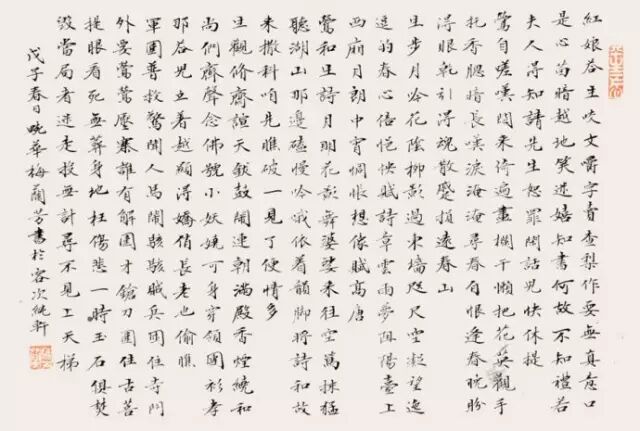 紅娘啓主咬文嚼字賣查梨作耍無真意口
是心苗暗越地笑述嬉知書何故不知禮若
夫人得知請先生恕罪閒話兒快休提
鶯自嗟嘆閒來倚遍畫欄干懶把花英觀手
托香腮暗長嘆淚淹淹尋春有恨逢春晚盼
得眼乾引得魂散蹙損遠春山
生步月吟花陰柳影過東墻咫尺空凝望迤
逗的春心倦怏怏賦詩章雲雨夢阻陽臺上
西廂月朗中宵惆悵想像賦高唐
鶯和生詩月明花影舞婆娑來往空萬拂猛
聽湖山那邊磕慢吟哦依着韻脚將詩和故
來撒科咱先瞧破一見了便情多
生觀修齋諠天鈸鼓鬧連朝滿殿香煙繞和
尚們齋聲念佛號小妖嬈可身穿領團衫孝
那答兒立着越顯得嬌俏長老也偷瞧
軍圍普救驚聞人馬鬧駭駭賊兵圍住寺門
外要鶯鶯壓寨誰有解圍才鎗刀圍住古菩
提眼看死無葬身地枉傷悲一時玉石俱焚
毀當局者迷走投無計尋不見上天梯
戊子春日晚華梅蘭芳書於客次純軒